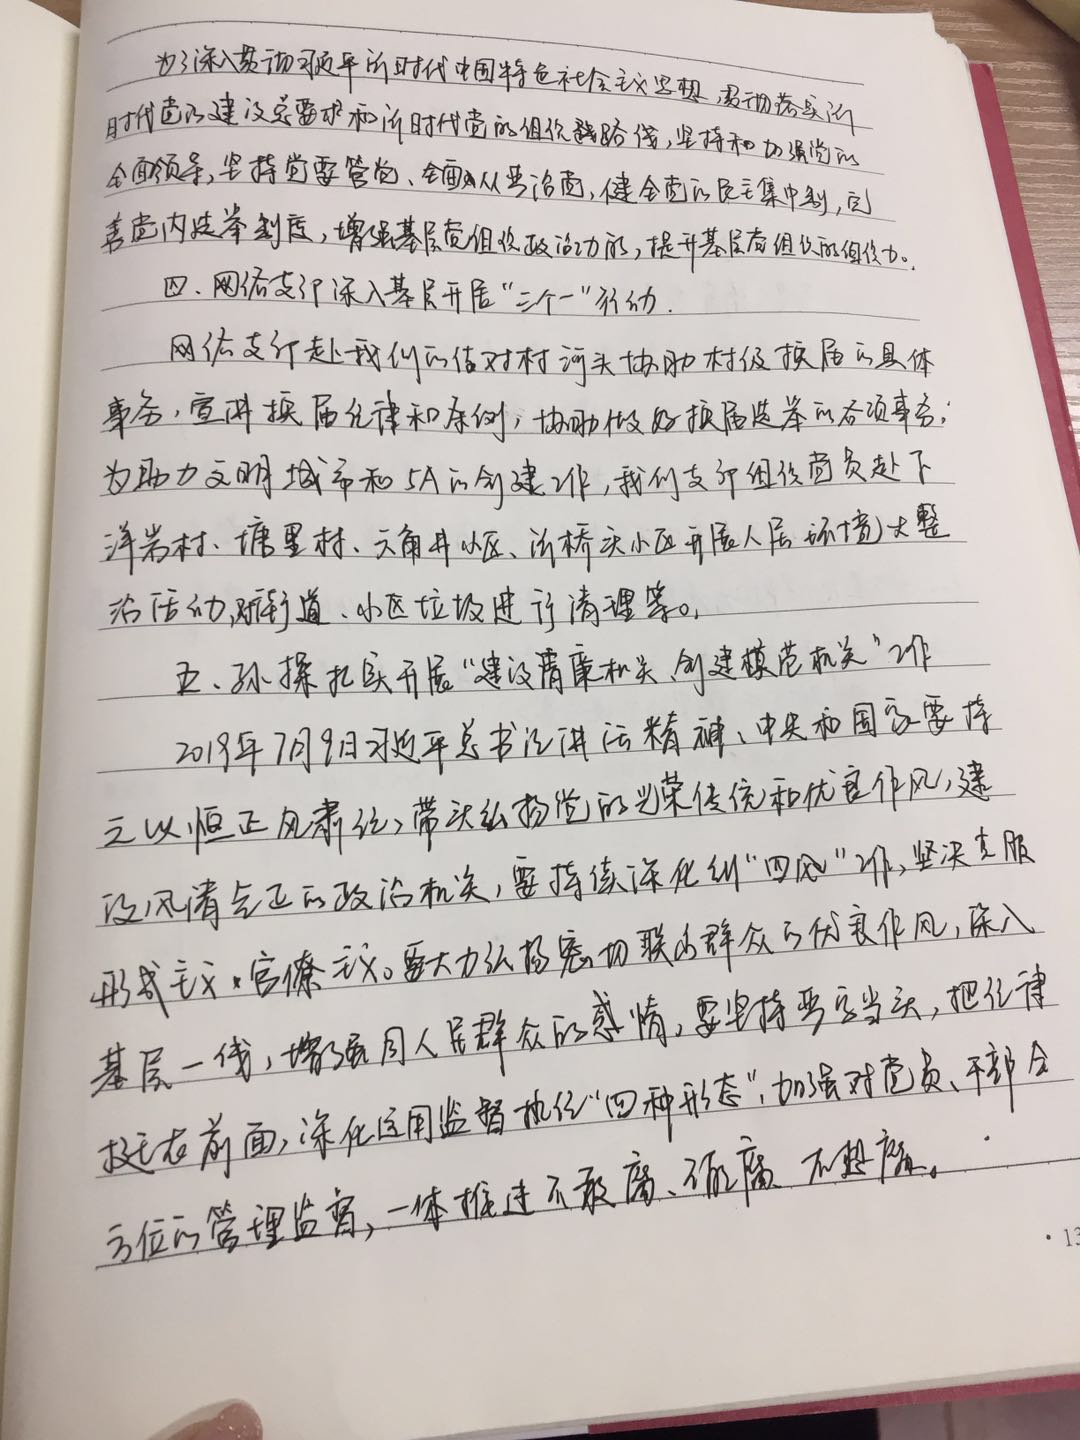 为了深入贯彻习近平新时代中国特色社会主义思想，贯彻落实新
时代党的建设总要求和新时代党的组织路线，坚持和加强党的
全面领导，坚持党要管党、全面从严治党，健全党的民主集中制，完
善党内选举制度，增强基层党组织政治功能，提升基层党组织的组织力。
四、网络支部深入基层开展“三个一”行动．
网络支部赴我们的结对村河头协助村级换届的具体
事务，宣讲换届纪律和条例，协助做好换届选举的各项事务；
为助力文明城市和5A的创建工作，我们支部组织党员赴下
洋岩村、塘里村、六角井小区、新桥头小区开展人居环境大整
治活动，对街道、小区垃圾进行清理等。
五、孙探扎实开展“建设清廉机关、创建模范机关”工作
2019年7月9日习近平总书记讲话精神、中央和国家要持
之以恒正风肃纪，带头弘扬党的光荣传统和优良作风，建
设风清气正的政治机关，要持续深化纠“四风”工作，坚决克服
形式主义、官僚主义。要大力弘扬密切联系群众的优良作风，深入
基层一线，增强同人民群众的感情，要坚持严字当头，把纪律
挺在前面，深化运用监督执纪“四种形态”，加强对党员、干部全
方位的管理监督，一体推进不敢腐、不能腐、不想腐。
13